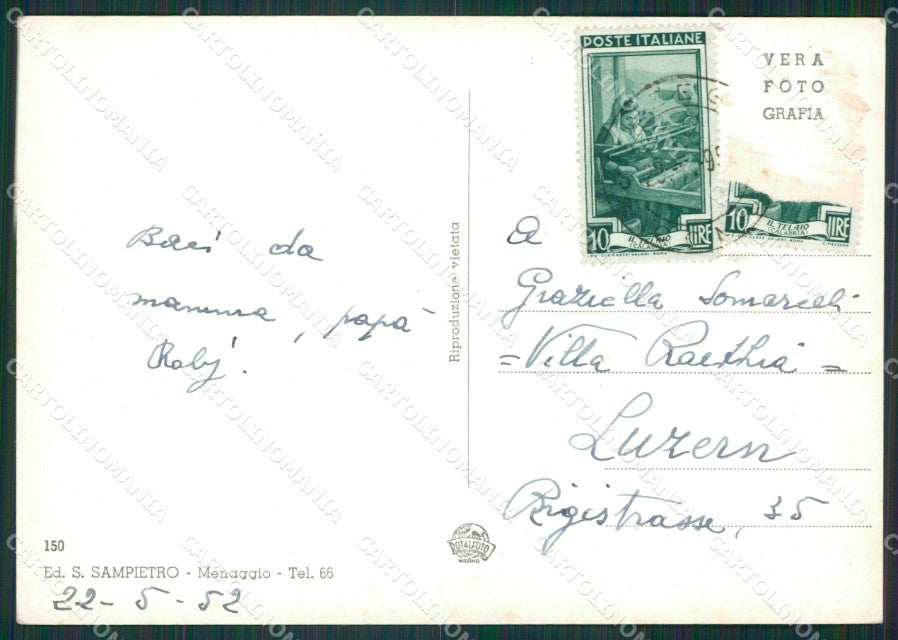 Baci da
mamma, papà
Roby!
150
Ed. S. SAMPIETRO - Menaggio - Tel. 66
22-5-52
Riproduzione vietata
ROTALFOTO
MILANO
POSTE ITALIANE
10 IL TELAIO LIRE
CALABRIA
VERA
FOTO
GRAFIA
10 IL TELAIO LIRE
CALABRIA
A
Graziella Somarelli
=Villa Raethia=
Luzern
Rigistrasse, 35
CARTOLINOMANIA